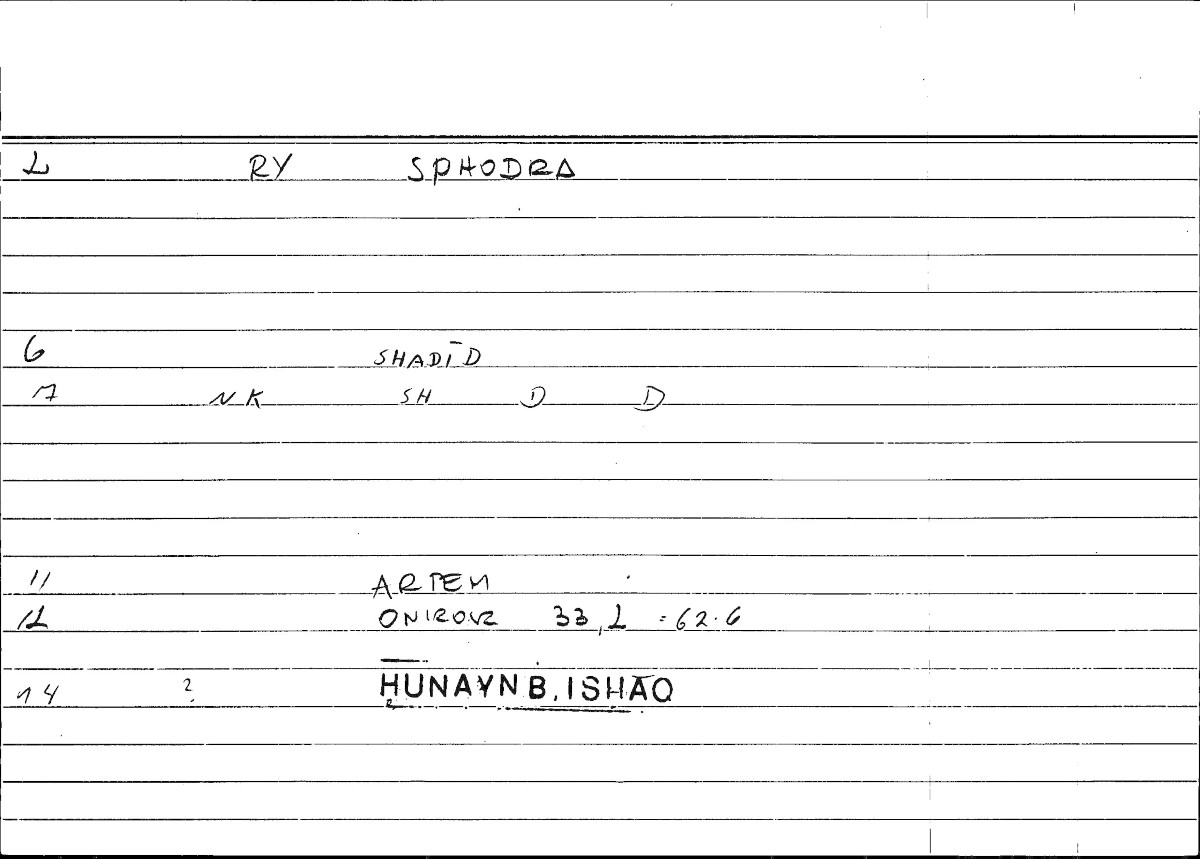 2 RY SPHODRA
6 SHADĪD
7 NK SH D D
11 ARTEM
12 ONIROCR 33,2 = 62.6
14 ? HUNAYN B. ISHAQ